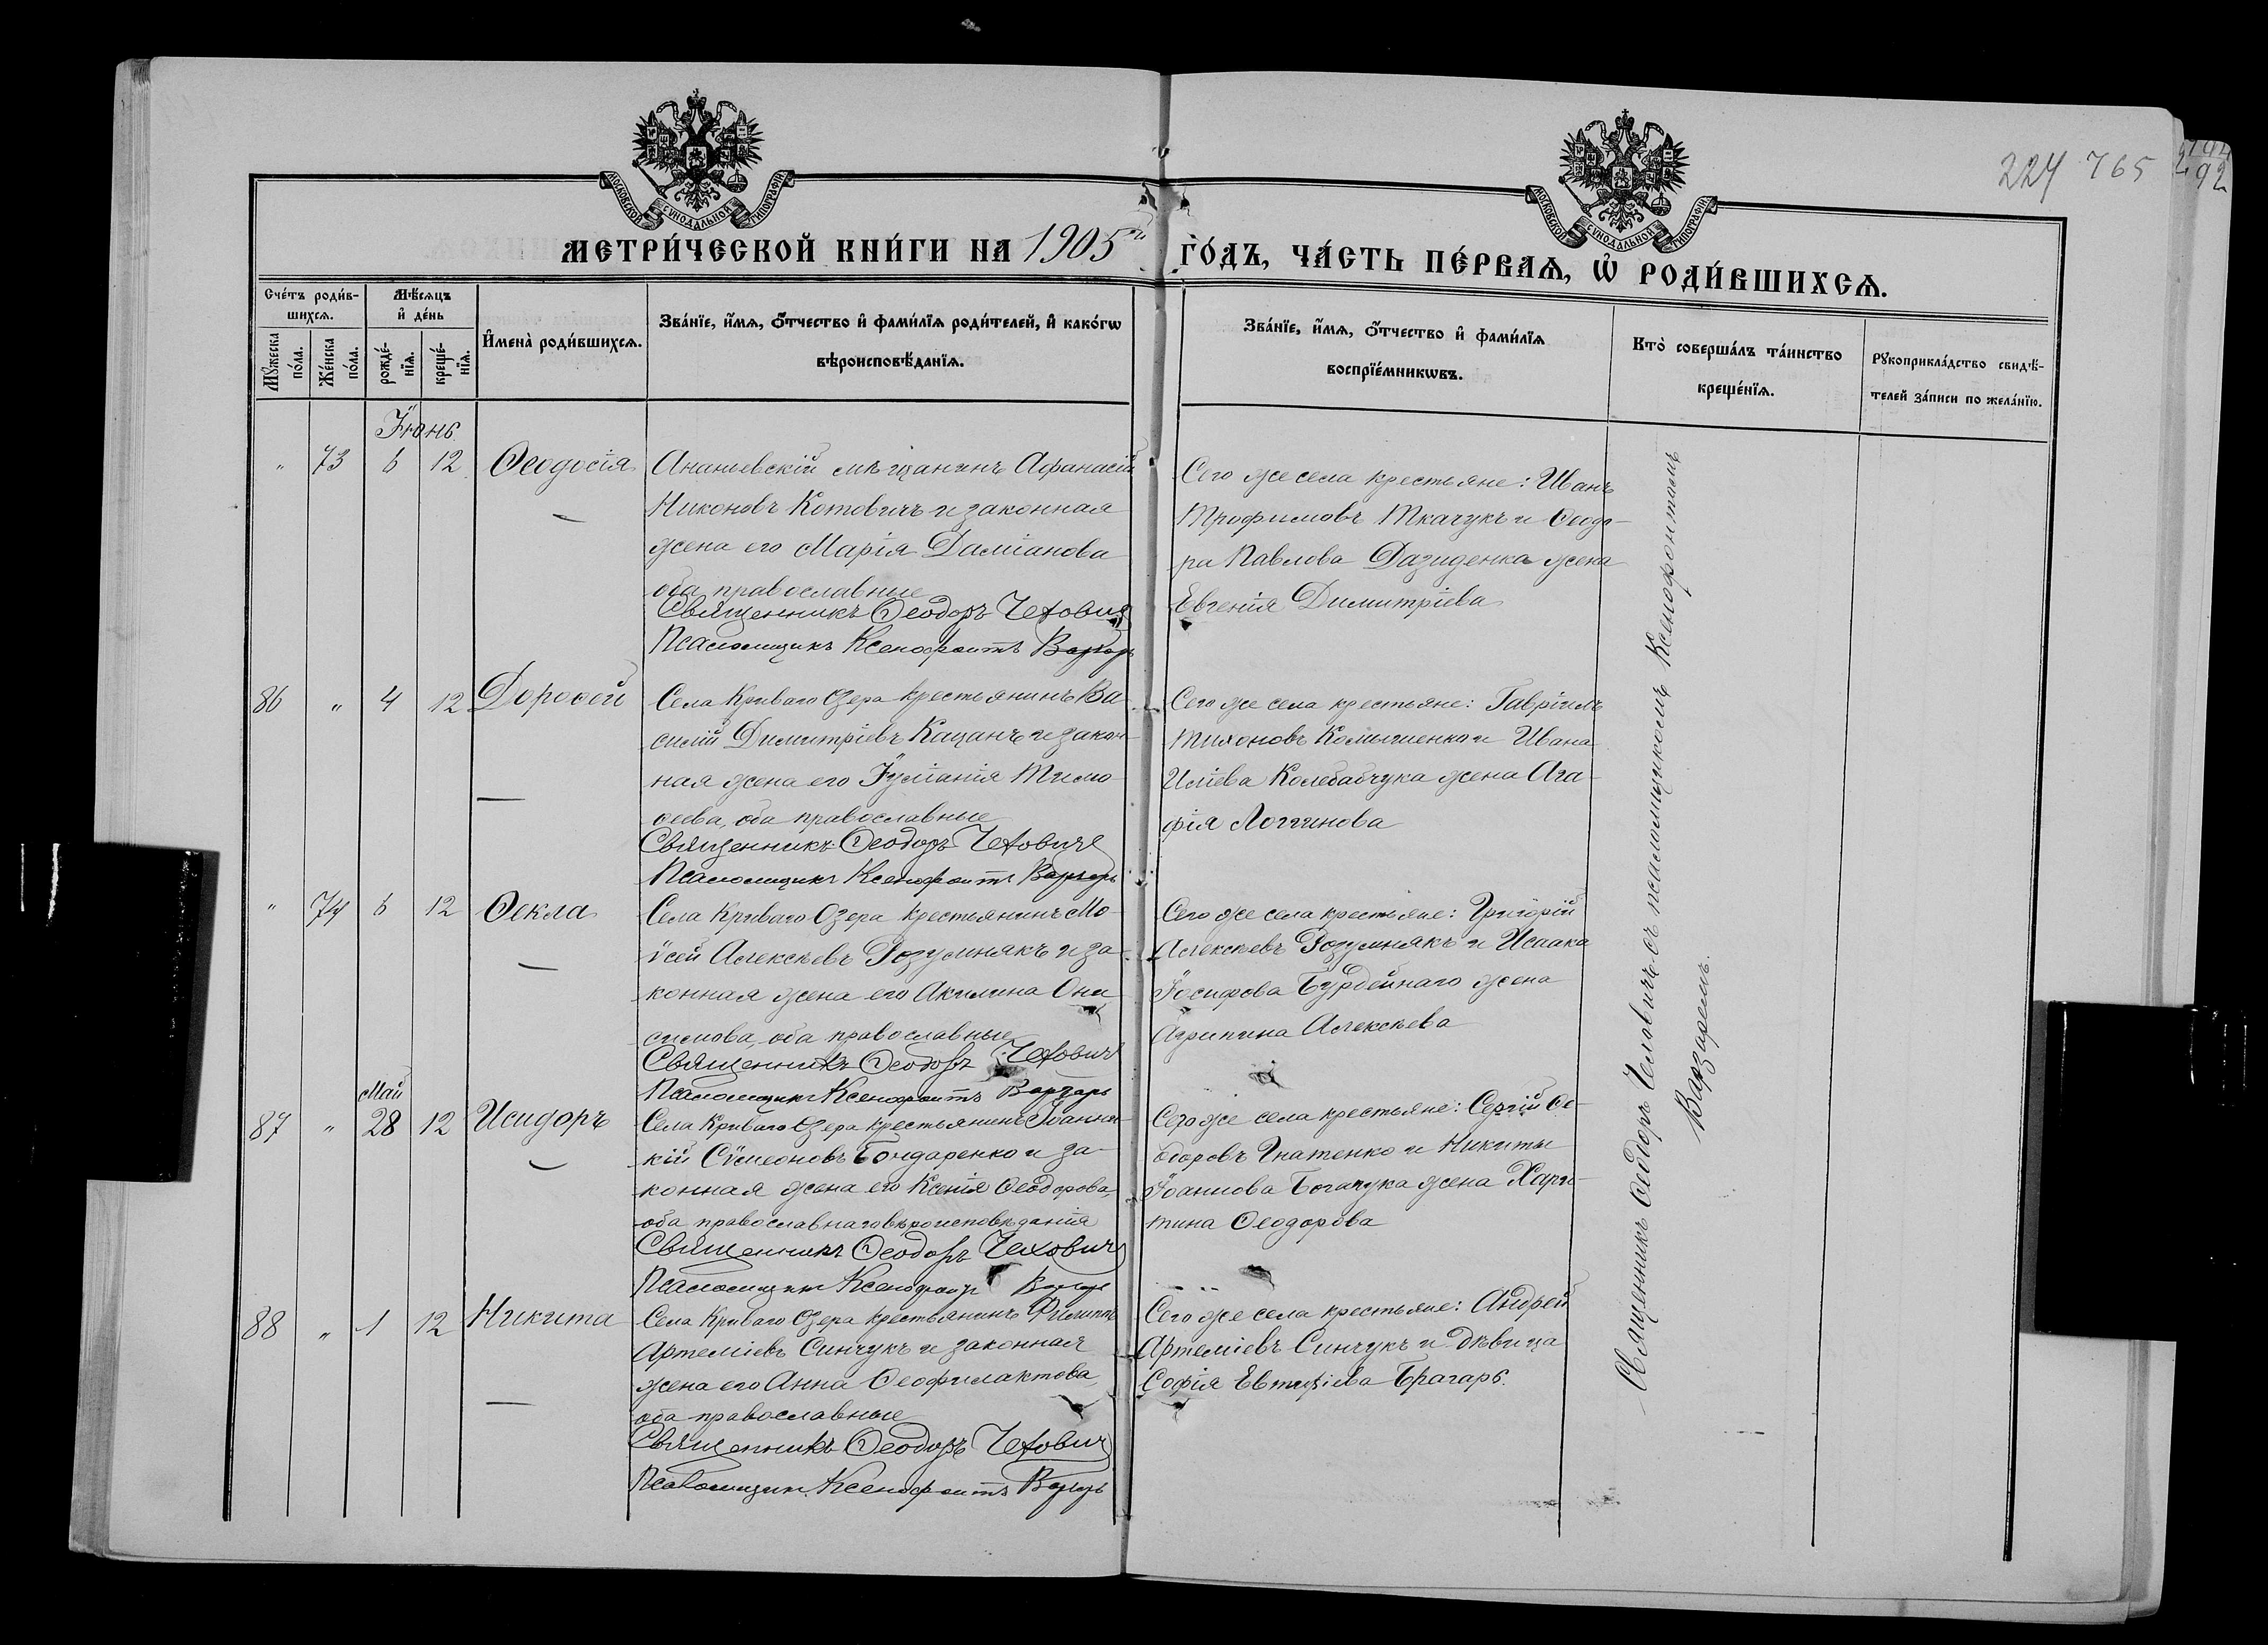 224 765
92
МОСКОВСКОЙ СѴНОДАЛЬНОЙ ТИПОГРАФІИ
МОСКОВСКОЙ СѴНОДАЛЬНОЙ ТИПОГРАФІИ
МЕТРИ́ЧЕСКОЙ КНИ́ГИ НА 1905й ГО́ДЪ, ЧА́СТЬ ПЕ́РВАѦ, Ѡ҆ РОДИ́ВШИХСѦ.
Сче́тъ роди́в-
шихсѧ.
Мꙋ́жеска по́ла.
Же́нска по́ла.
Мѣ́сѧцъ
и҆ де́нь
рожде́-
нїѧ.
креще́-
нїѧ.
И҆мена̀ роди́вшихсѧ.
Зва́нїе, и҆́мѧ, ѻ҆́тчество и҆ фами́лїѧ роди́телей, и҆ како́гѡ
вѣроисповѣ́данїѧ.
Зва́нїе, и҆́мѧ, ѻ҆́тчество и҆ фами́лїѧ
воспрїе́мникѡвъ.
Кто̀ соверша́лъ та́инство
креще́нїѧ.
Рꙋкоприкла́дство свидѣ́-
телей за́писи по жела́нїю.
Іюнь
" 73 6 12 Ѳеодосія
Ананьевскій мѣщанинъ Афанасій
Никоновъ Котовичъ и законная
жена его Марія Даміанова
оба православные
Священникъ Ѳеодоръ Чехович
Псаломщикъ Ксенофонтъ Варзарь
Сего же села крестьяне: Иванъ
Трофимовъ Ткачукъ и Ѳеодо-
ра Павлова Дазиденка жена
Евгенія Димитріева
86 " 4 12 Дороѳей
Села Криваго Озера крестьянинъ Ва-
силій Димитріевъ Кацанъ и закон-
ная жена его Іуліанія Тимо-
ѳеева, оба православные
Священникъ Ѳеодоръ Чехович
Псаломщикъ Ксенофонтъ Варзарь
Сего же села крестьяне: Гавріилъ
Тихоновъ и Ивана
Иліева Колебабчука жена Ага-
фія Логгинова
" 74 6 12 Ѳекла
Села Криваго Озера крестьянинъ Мо-
ѵсей Алексѣевъ Розумнякъ и за-
конная жена его Акилина Они-
симова, оба православные
Священникъ Ѳеодоръ Чехович
Псаломщикъ Ксенофонтъ Варзарь
Сего же села крестьяне: Григорій
Алексѣевъ Розумнякъ и Исаака
Іосифова Бурдейнаго жена
Агрипина Алексѣева
Май
87 " 28 12 Исидоръ
Села Криваго Озера крестьянинъ Іоанни-
кій Сѵмеоновъ Бондаренко и за-
конная жена его Ксенія Ѳеодорова
оба православнаго вѣроисповѣданія
Священникъ Ѳеодоръ Чехович
Псаломщикъ Ксенофонтъ
Сего же села крестьяне: Сергій Ѳе-
одоровъ Гнатенко и Никиты
Іоаннова Богачука жена Хари-
тина Ѳеодорова
88 " 1 12 Никита
Села Криваго Озера крестьянинъ Филиппъ
Артеміевъ Синчукъ и законная
жена его Анна Ѳеофилактова,
оба православные
Священникъ Ѳеодоръ Чехович
Псаломщикъ Ксенофонтъ Варзарь
Сего же села крестьяне: Андрей
Артеміевъ Синчукъ и дѣвица
Софія Евтихіева Брагарь.
Священникъ Ѳеодоръ Чеховичъ съ псаломщикомъ Ксенофонтомъ
Варзаремъ.